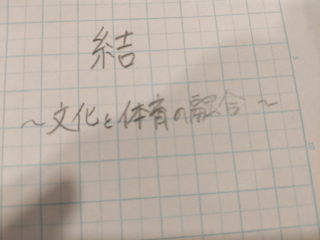 結
～文化と体育の融合～